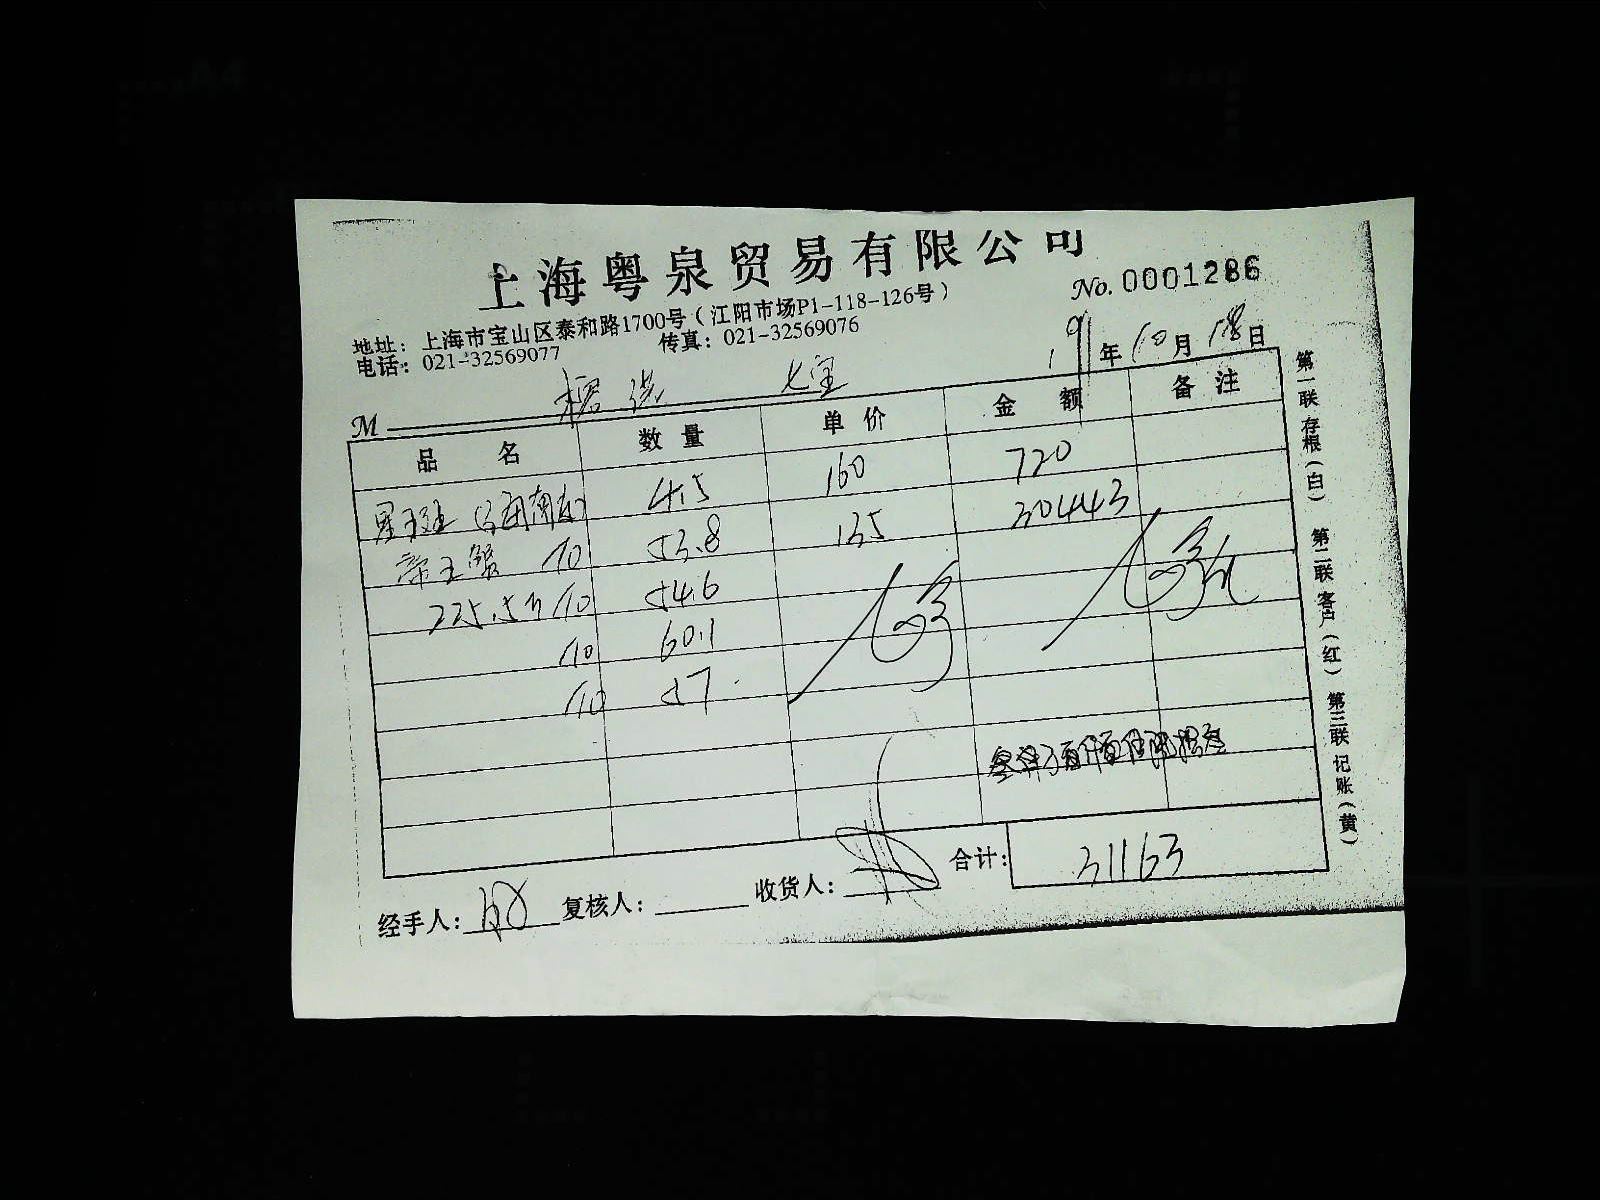 上海粤泉贸易有限公司
No. 0001286
地址：上海市宝山区泰和路1700号（江阳市场P1-118-126号）
电话：021-32569077 传真：021-32569076
19年10月18日
M 七宝
品名 数量 单价 金额 备注
星斑 4.5 160 720
帝王蟹 10 53.8 135 30443
225.5 10 54.6
10 60.1
10 57
合计：31163
经手人： 复核人： 收货人：
第一联 存根（白） 第二联 客户（红） 第三联 记账（黄）